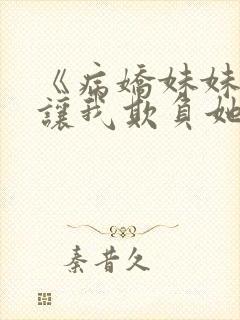 《病嬌妹妹
讓我欺負她
秦昔久